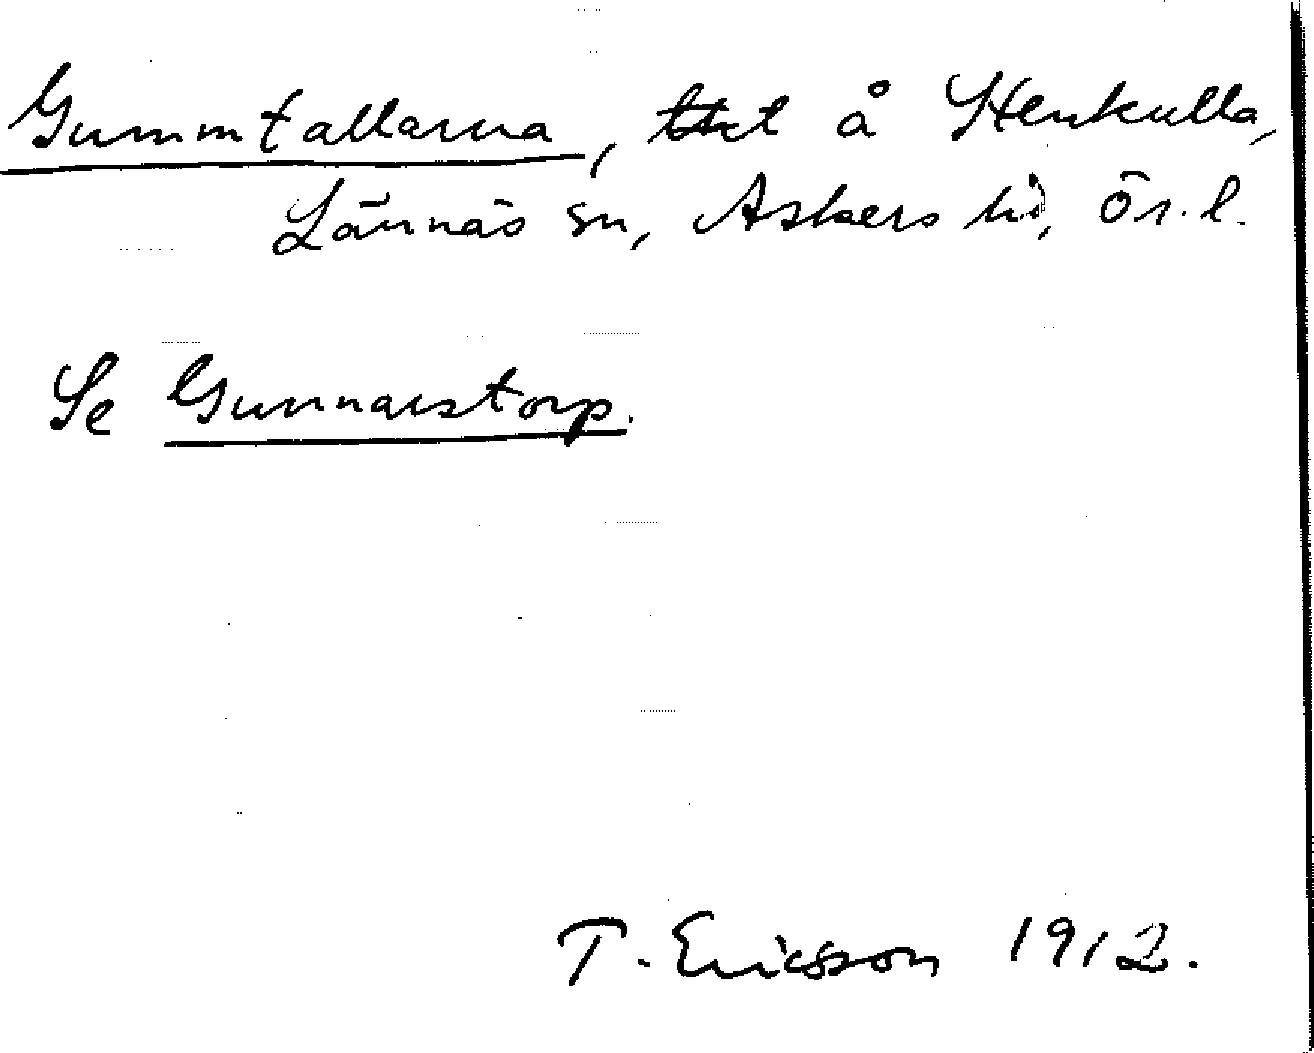 Gummtallarna, tct å Stenkulla,
Lännäs sn, Askers hd, Ör. l.
Se Gunnarstorp.
T. Ericsson 1912.